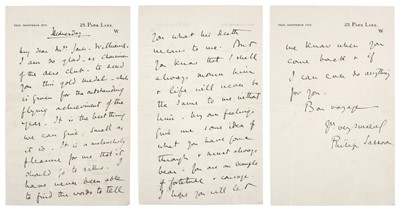 TELE: GROSVENOR 2170.
25, PARK LANE,
W
Wednesday
My dear Mrs Jones-Williams,
I am so glad, as chairman
of the Aero club, to send
you this gold medal - which
is given for the outstanding
flying achievement of the
year. It is the best thing
we can give, small as
it is. It is a melancholy
pleasure for me that it
should go to
have never been able
to find the words to tell
you what his death
means to me. But
you know that I shall
always mourn him
& life will never be
the same to me without
him. My own feelings
give me some idea of
what you have gone
through & must always
bear. You are an example
of fortitude & courage.
I hope you will let
25, PARK LANE,
W
me know when you
come back & if
I can ever do anything
for you.
Bon voyage
Yrs very sincerely
Philip Sassoon